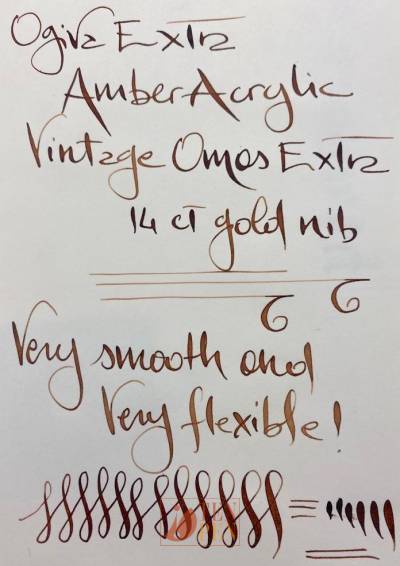 Ogiva Extra
Amber Acrylic
Vintage Omas Extra
14 ct gold nib
Very smooth and
Very flexible!